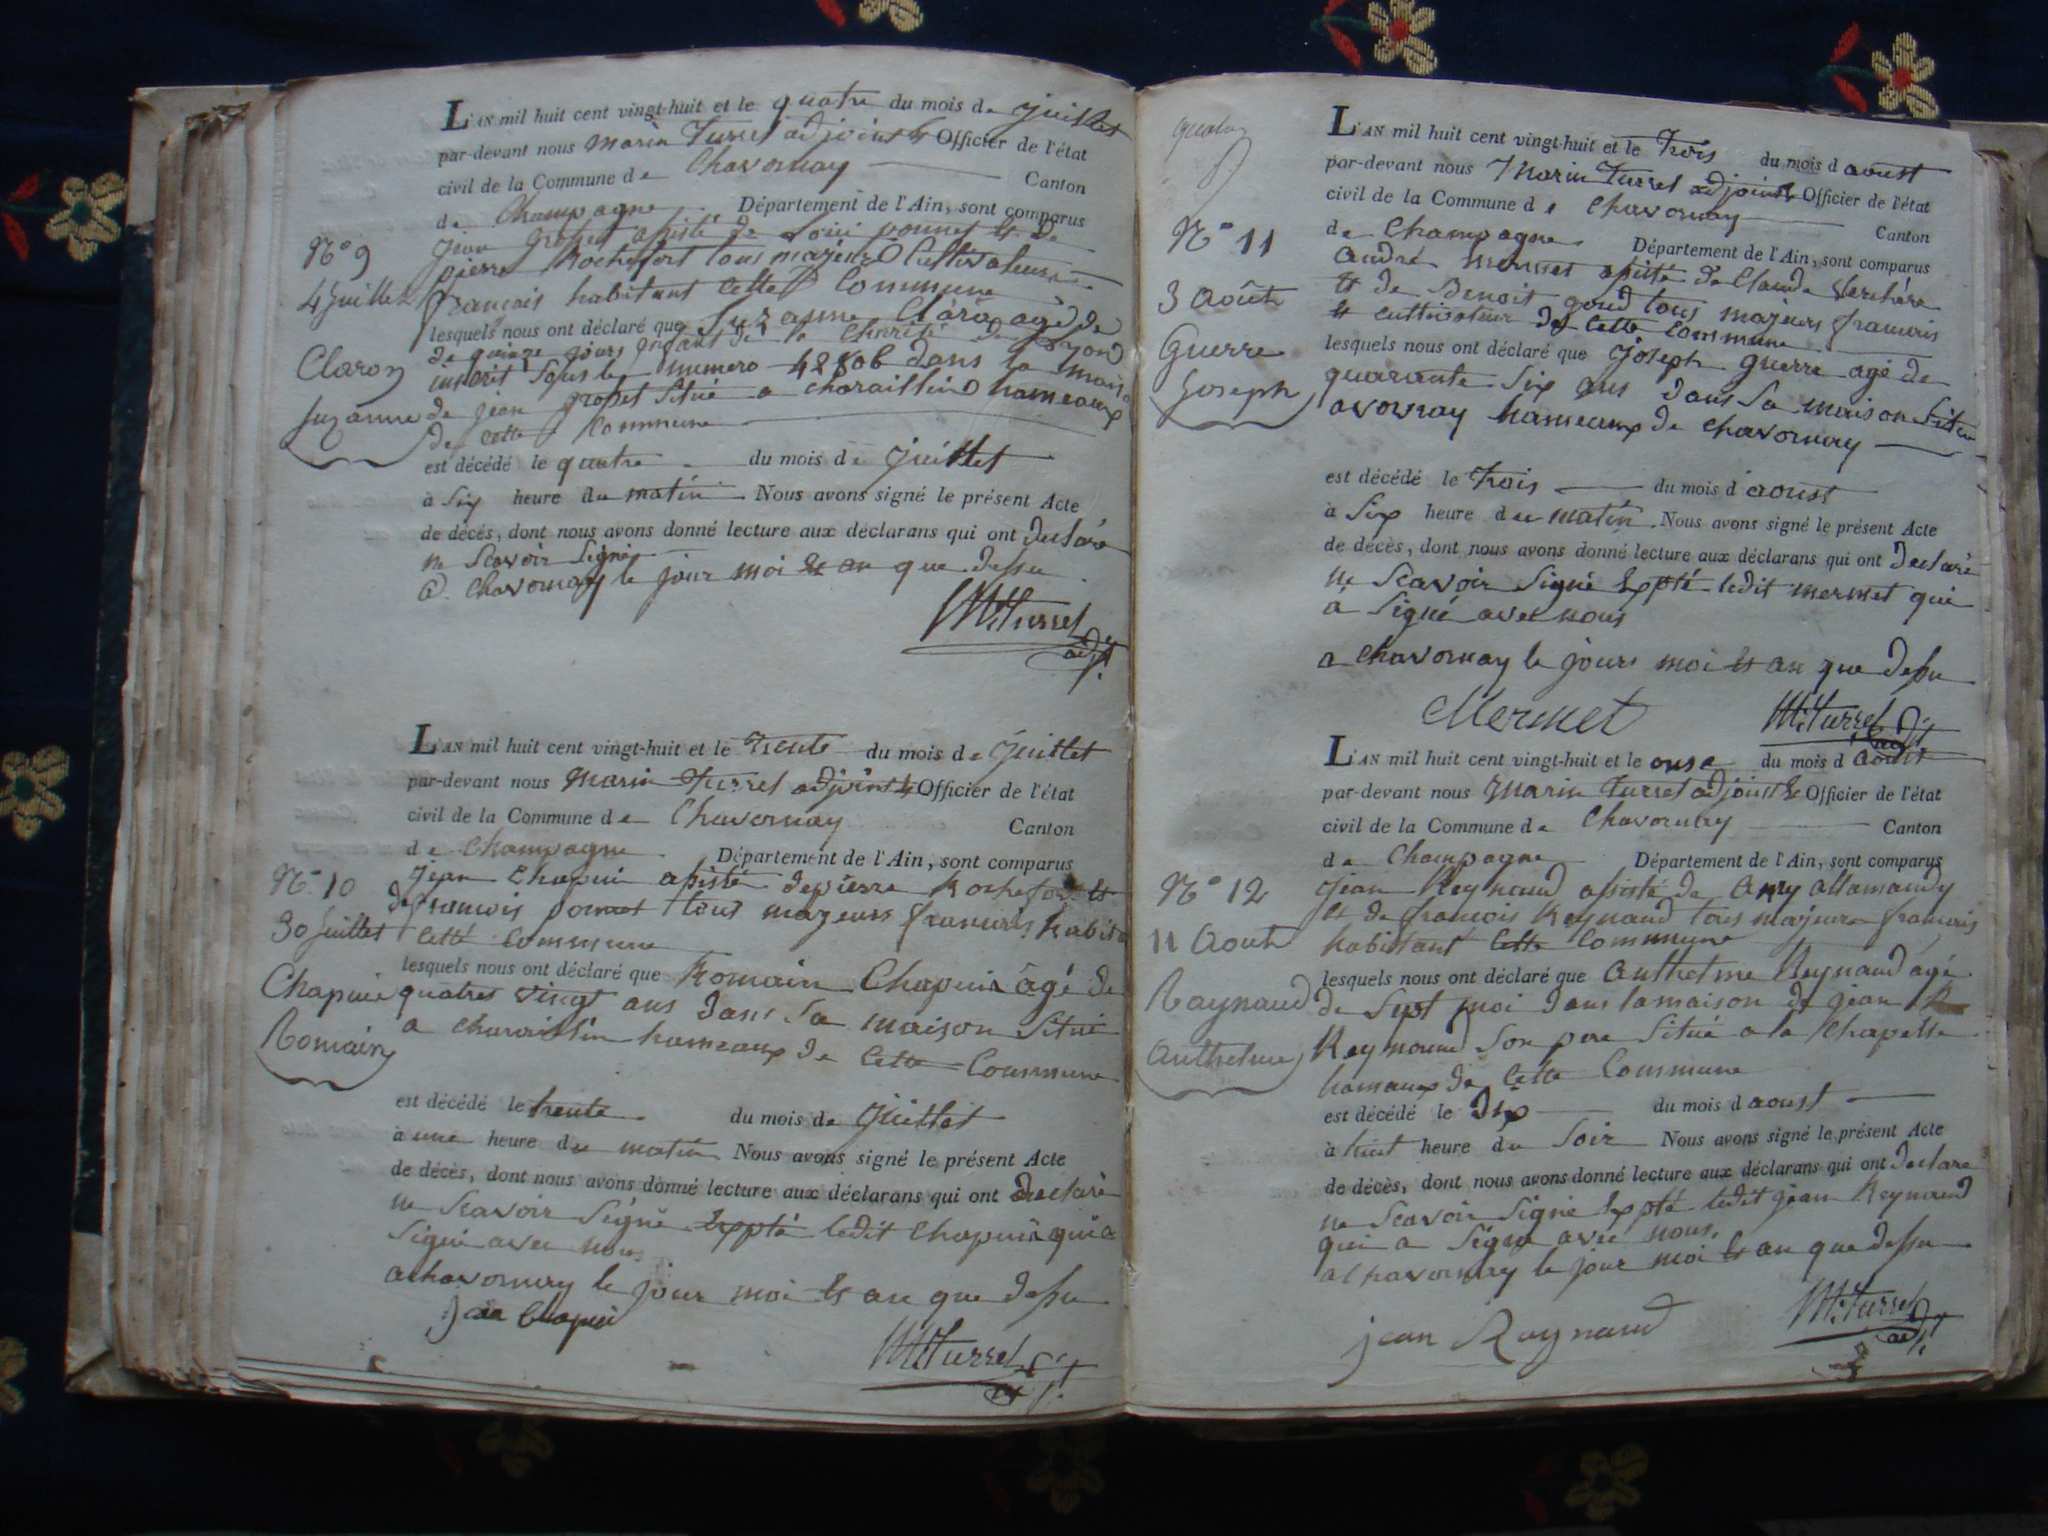 L'AN mil huit cent vingt-huit et le quatre du mois de juillet
par-devant nous marin Turrel adjoint et Officier de l'état
civil de la Commune de Chavornay Canton
de Champagne Département de l'Ain, sont comparus
N° 9
jean assisté de et de
4 juillet
pierre Rochefort tous majeurs Cultivateurs
francois habitant cette Commune
lesquels nous ont déclaré que Suzanne agé de
Claron
Suzanne
de quinze jours de la Charité de Lyon
inscrit sous le numero dans la maison
de jean situé a hameaux
de cette Commune
est décédé le quatre du mois de juillet
à six heure du matin Nous avons signé le présent Acte
de décès, dont nous avons donné lecture aux déclarans qui ont declaré
ne Scavoir Signé
a Chavornay le jour moi et an que dessu
M. Turrel
adjt.
L'AN mil huit cent vingt-huit et le trente du mois de juillet
par-devant nous Marin Turrel adjoint et Officier de l'état
civil de la Commune de Chavornay Canton
de Champagne Département de l'Ain, sont comparus
N° 10
30 juillet
Chapuis
Romain
jean Chapuis assisté de pierre Rochefort et
de francois ponnet tous majeurs francais habita
cette Commune
lesquels nous ont déclaré que Romain Chapuis âgé de
quatres vingt ans dans sa maison situé
a hameaux de cette Commune
est décédé le trente du mois de juillet
à une heure du matin Nous avons signé le présent Acte
de décès, dont nous avons donné lecture aux déclarans qui ont declaré
ne Scavoir Signé Expté ledit Chapuis qui a
Signé avec nous
a Chavornay le jour moi et an que dessu
M. Turrel
adjt.
L'AN mil huit cent vingt-huit et le Trois du mois d aoust
par-devant nous Marin Turrel adjoint et Officier de l'état
civil de la Commune de Chavornay Canton
de Champagne Département de l'Ain, sont comparus
N° 11
3 Août
Guerre
Joseph
andré mermet assisté de Claude
et de Benoit goud tous majeurs francais
et cultivateur de cette commune
lesquels nous ont déclaré que joseph guerre agé de
quarante Six ans dans sa maison Situé
a vovray hameaux de chavornay
est décédé le Trois du mois d aoust
à Six heure du matin Nous avons signé le présent Acte
de décès, dont nous avons donné lecture aux déclarans qui ont declaré
ne Scavoir Signé Expté ledit mermet qui
a Signé avec nous
a chavornay le jours moi et an que dessu
Mermet
M. Turrel
adjt
L'AN mil huit cent vingt-huit et le onse du mois d aoust
par-devant nous Marin Turrel adjoint et Officier de l'état
civil de la Commune de Chavornay Canton
de Champagne Département de l'Ain, sont comparus
N° 12
11 Août
Raynaud
Anthelme
jean Reynaud assisté de allamandy
et de francois Reynaud tous majeurs francais
habitant cette Commune
lesquels nous ont déclaré que anthelme Reynaud agé
de Sept moi dans la maison de jean
Reynaud son pere situé a la Chapelle
hamaux de cette Commune
est décédé le Dix du mois d aoust
à huit heure du Soir Nous avons signé le présent Acte
de décès, dont nous avons donné lecture aux déclarans qui ont declaré
ne Scavoir Signé Expté ledit jean Reynaud
qui a Signé avec nous
a Chavornay le jour moi et an que dessu
jean Raynaud
M. Turrel
adjt